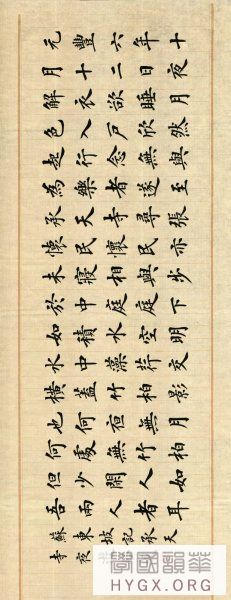 元豐六年十
月十二日夜
解衣欲睡月
色入戶欣然
起行念無與
為樂者遂至
承天寺尋張
懷民懷民亦
未寢相與步
於中庭庭下
如積水空明
水中藻荇交
橫蓋竹柏影
也何夜無月
何處無竹柏
但少閑人如
吾兩人者耳
蘇東坡記承天
寺夜
學國韻華
HYGX.ORG